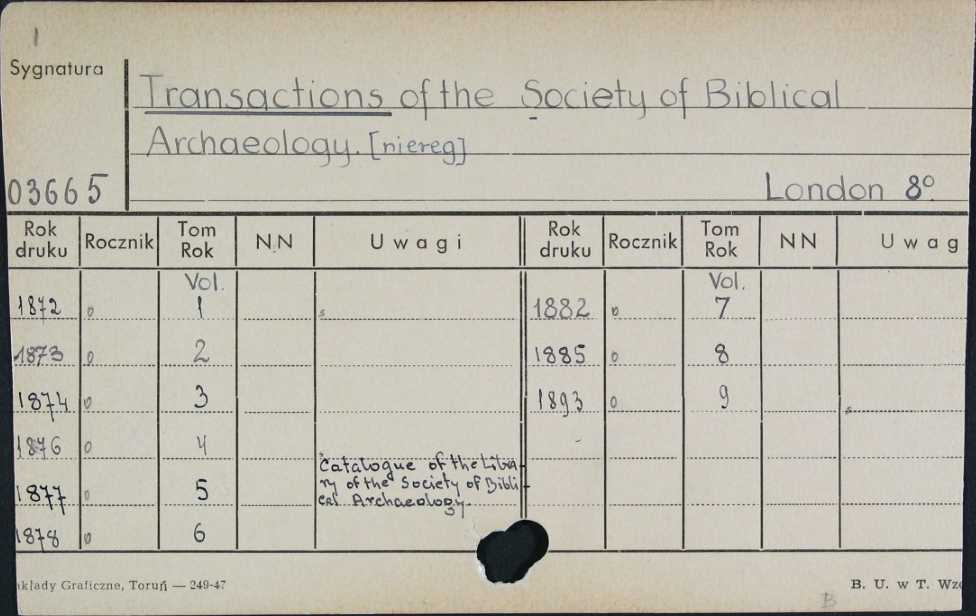 1
Sygnatura
Transactions of the Society of Biblical
Archaeology. [niereg]
03665
London 8°.
Rok druku Rocznik Tom Rok NN Uwagi Rok druku Rocznik Tom Rok NN Uwag
Vol. Vol.
1872 o 1 s 1882 o 7
1873 o 2 1885 o 8
1874 o 3 1893 o 9 s
1876 o 4
Catalogue of the Libra-
1877 o 5 ry of the Society of Bibli-
cal Archaeology.
1878 o 6
kłady Graficzne, Toruń — 249-47
B. U. w T. Wzo
B